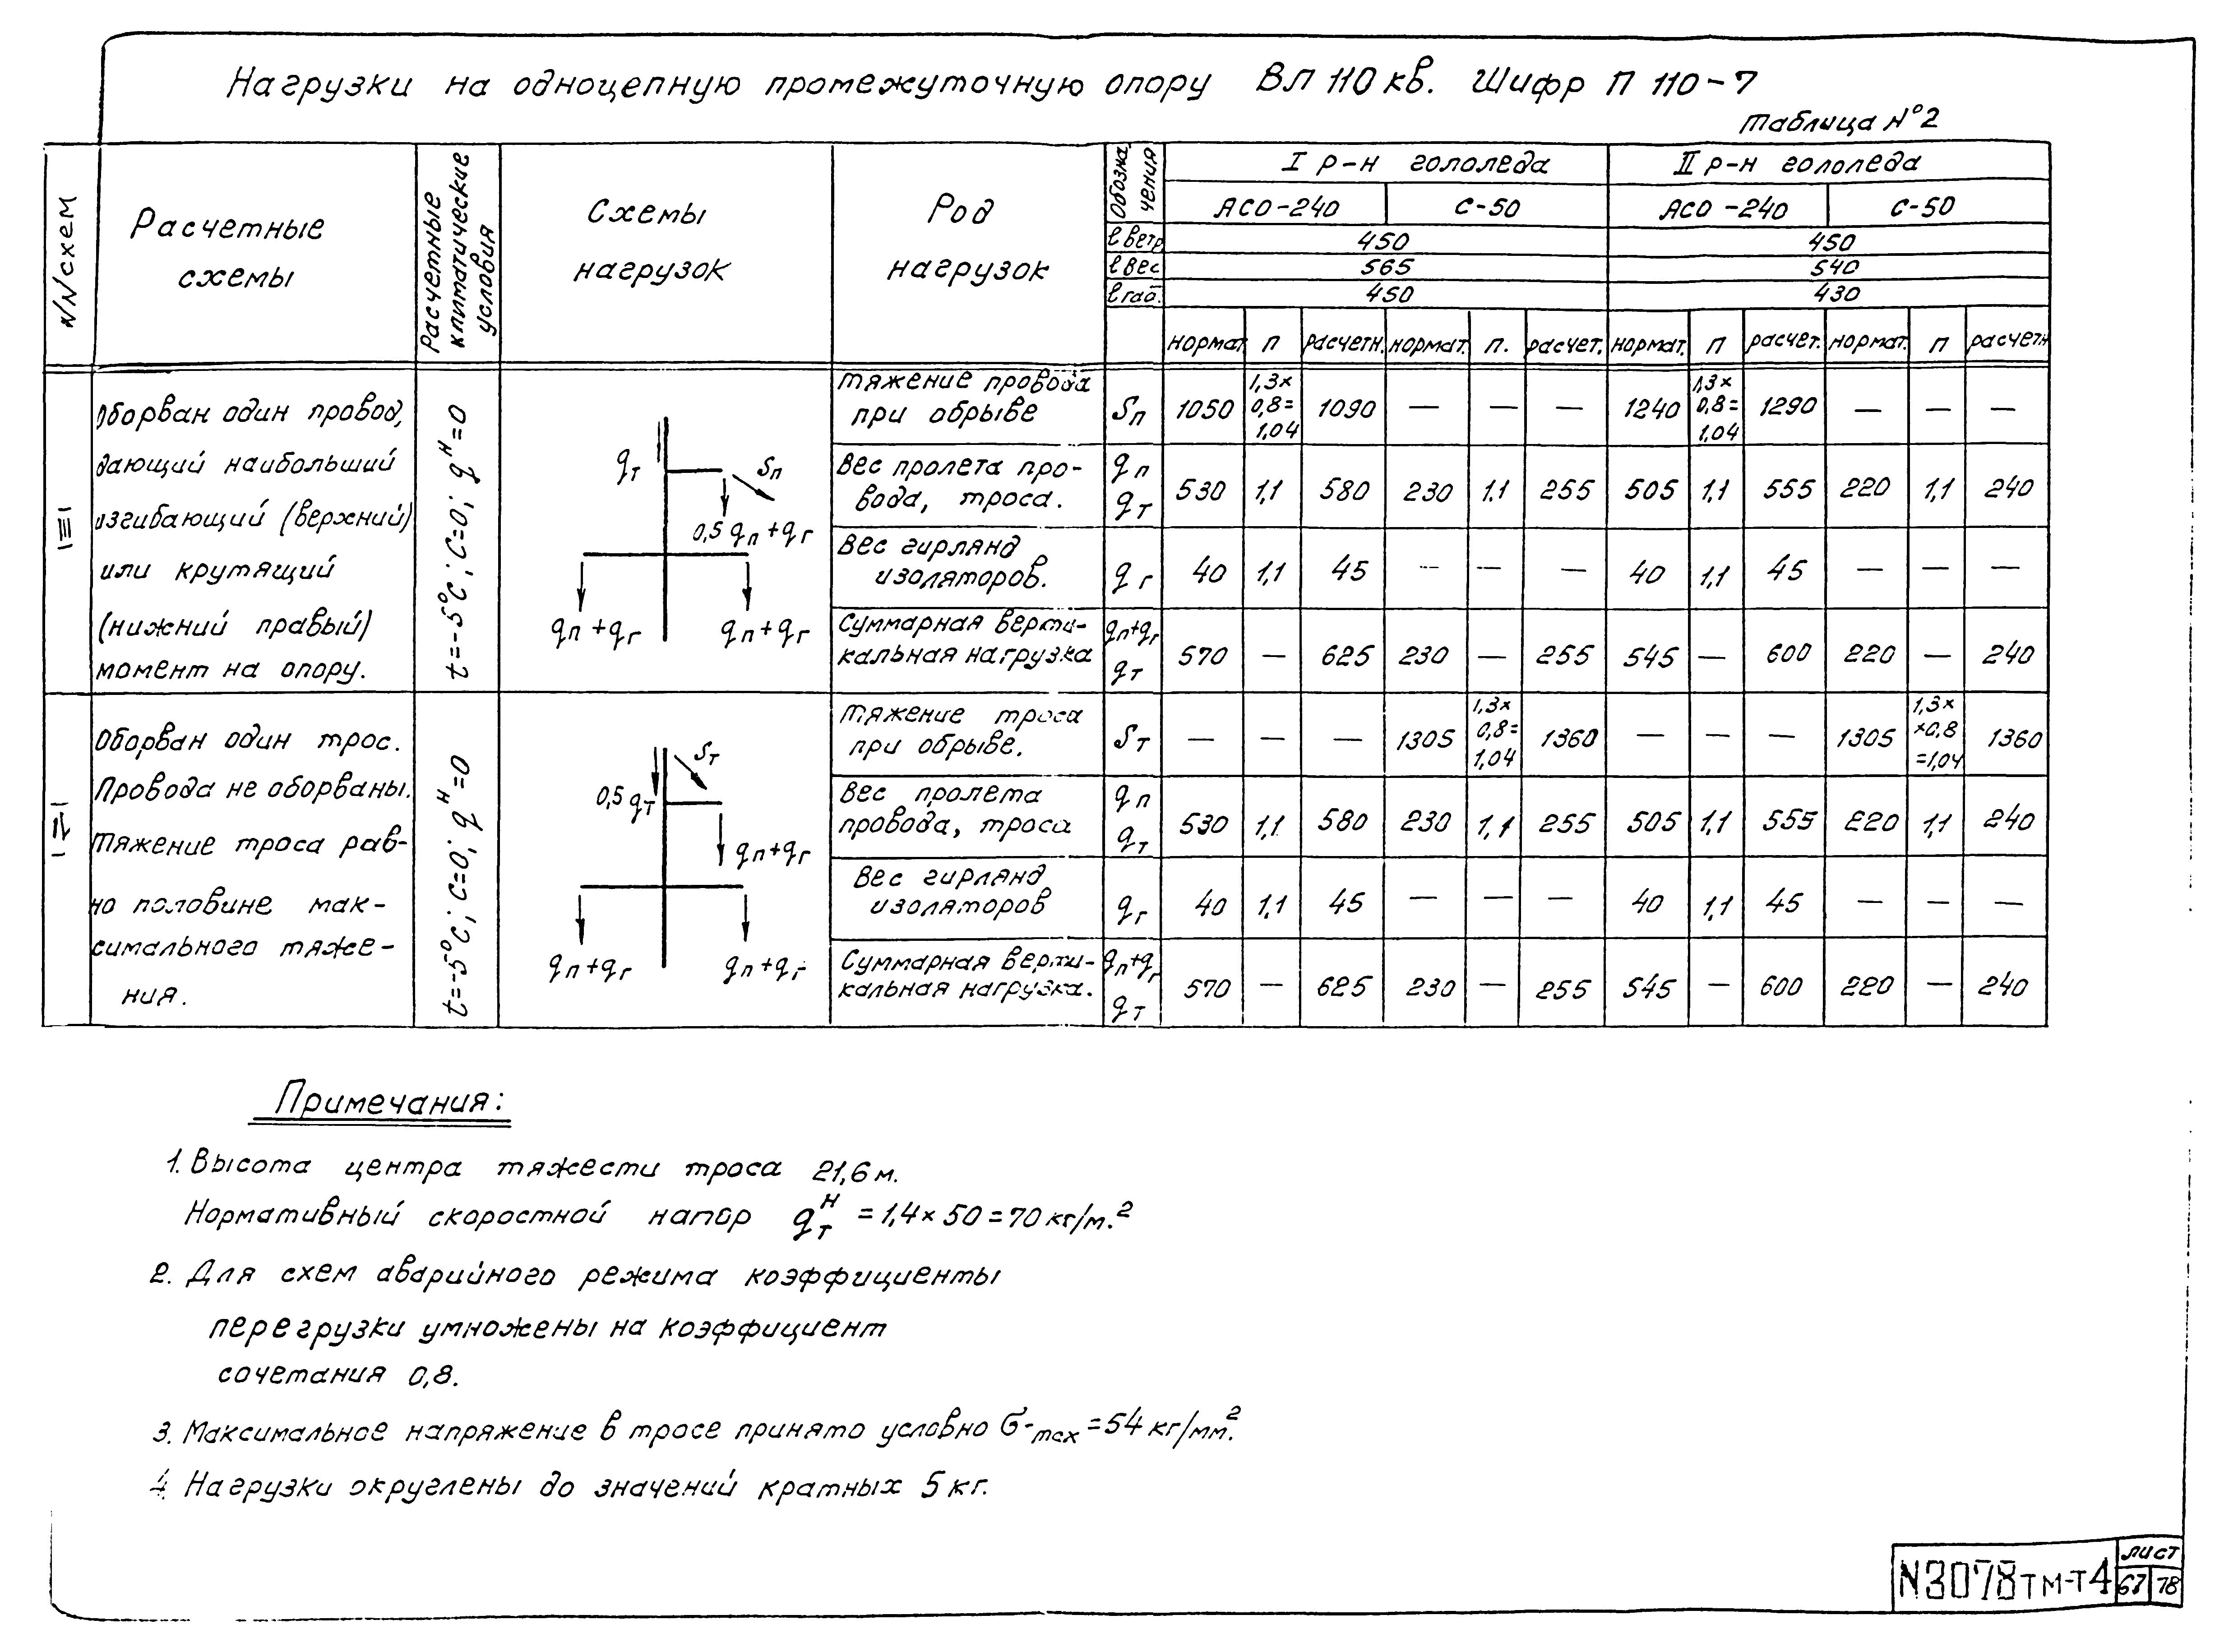 Нагрузки на одноцепную промежуточную опору ВЛ 110 кв. Шифр П 110-7
Таблица N°2
NN схем
Расчетные
схемы
Расчетные
климатические
условия
Схемы
нагрузок
Род
нагрузок
Обозна
чения
I р-н гололеда
II р-н гололеда
АСО-240
С-50
АСО-240
С-50
ℓ ветр
450
450
ℓ вес
565
540
ℓ габ.
450
430
нормат. п расчетн. нормат. п. расчет. нормат. п расчет. нормат. п расчетн
III
Оборван один провод,
дающий наибольший
изгибающий (верхний)
или крутящий
(нижний правый)
момент на опору.
t=-5°C; C=0; qᴴ=0
qт
Sп
0,5 qп+qг
qп+qг
qп+qг
Тяжение провода
при обрыве
Sп
1050 1,3×0,8=1,04 1090 — — — 1240 1,3×0,8=1,04 1290 — — —
Вес пролета про-
вода, троса.
qп
qт
530 1,1 580 230 1,1 255 505 1,1 555 220 1,1 240
Вес гирлянд
изоляторов.
qг
40 1,1 45 — — — 40 1,1 45 — — —
Суммарная верти-
кальная нагрузка
qп+qг
qт
570 — 625 230 — 255 545 — 600 220 — 240
IV
Оборван один трос.
Провода не оборваны.
Тяжение троса рав-
но половине мак-
симального тяже-
ния.
t=-5°C; C=0; qᴴ=0
Sт
0,5 qт
qп+qг
qп+qг
qп+qг
Тяжение троса
при обрыве.
Sт
— — — 1305 1,3×0,8=1,04 1360 — — — 1305 1,3××0,8=1,04 1360
Вес пролета
провода, троса
qп
qт
530 1,1 580 230 1,1 255 505 1,1 555 220 1,1 240
Вес гирлянд
изоляторов
qг
40 1,1 45 — — — 40 1,1 45 — — —
Суммарная верти-
кальная нагрузка.
qп+qг
qт
570 — 625 230 — 255 545 — 600 220 — 240
Примечания:
1. Высота центра тяжести троса 21,6 м.
Нормативный скоростной напор qтᴴ = 1,4 × 50 = 70 кг/м.²
2. Для схем аварийного режима коэффициенты
перегрузки умножены на коэффициент
сочетания 0,8.
3. Максимальное напряжение в тросе принято условно σ-max = 54 кг/мм².
4. Нагрузки округлены до значений кратных 5 кг.
N3078тм-т4
лист
67 78